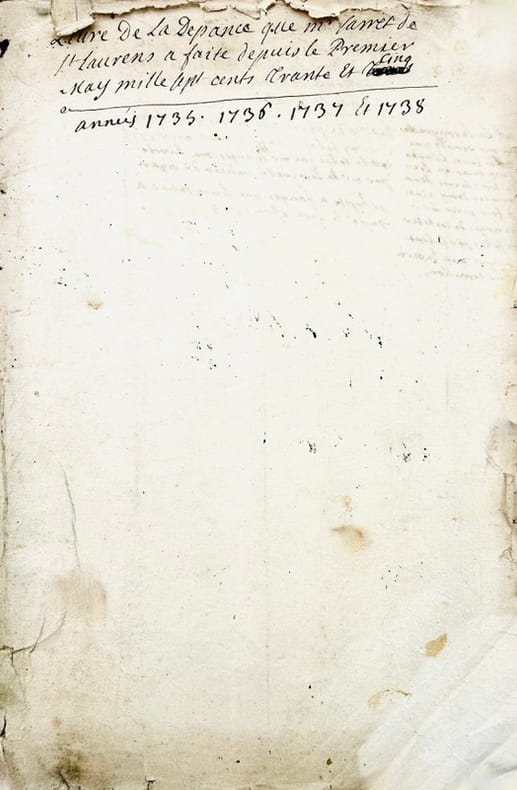 Livre De La Depance que mr Sarret de
St Laurens a faite depuis le Premier
May mille sept cents Trante Et Cinq
années 1735. 1736. 1737 Et 1738